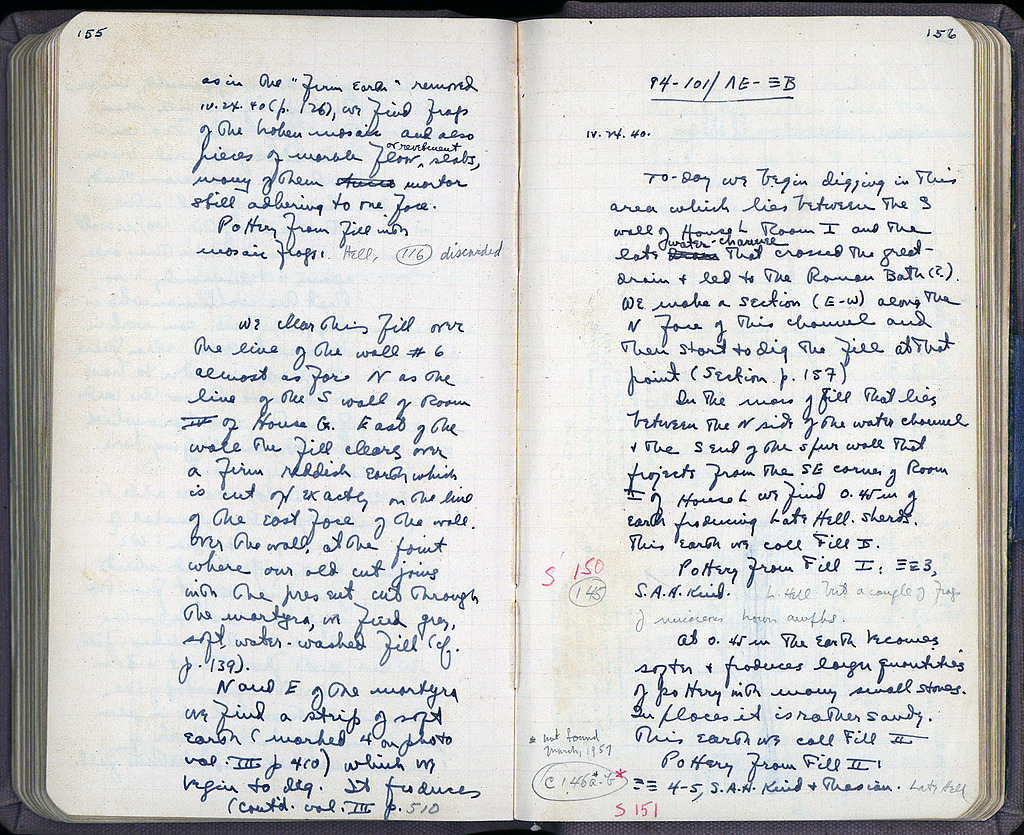 155
as in the "firm earth" removed
IV.24.40 (p. 126), we find frags
of the broken mosaic and also
or revetment
pieces of marble floor, slabs,
many of them mortar
still adhering to one face.
Pottery from fill with
mosaic frags: Hell. 116 discarded
We clear this fill over
the line of the wall #6
almost as far N as the
line of the S wall of Room
III of House G. East of the
wall the fill clears over
a firm reddish earth which
is cut off exactly on the line
of the East face of the wall.
Over the wall, at the point
where our old cut joins
with the present cut through
the martyra, we find grey,
soft, water-washed fill (cf.
p. 139).
N and E of the martyra
we find a strip of soft
earth (marked 4 on photo
vol. III p 410) which we
begin to dig. It produces
(cont'd. vol. III p. 510
156
94-101/ΛΕ-ΞΒ
IV.24.40.
To-day we begin digging in this
area which lies between the S
wall of House L Room I and the
water-channel
late that crossed the great-
drain & led to the Roman Bath (?).
We make a section (E-W) along the
N face of this channel and
then start to dig the fill at that
point (Section p. 157)
In the mass of fill that lies
between the N side of the water channel
& the S end of the spur wall that
projects from the SE corner of Room
I of House L we find 0.45 m of
earth producing Late Hell. sherds.
This earth we call Fill I.
Pottery from Fill I: ΞΞ3,
S 150
145
S.A.H. Kind. L. Hell but a couple of frags
of
At 0.45 m the earth becomes
softer & produces larger quantities
of pottery with many small stones.
In places it is rather sandy.
This earth we call Fill II
Pottery from Fill II:
* not found
March, 1957
C 146a*-b*
ΞΞ 4-5, S.A.H. Kind & Thasian. Late Hell
S 151